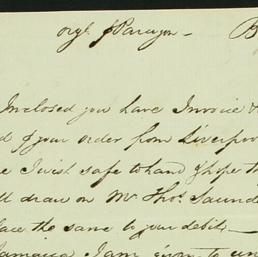 orgl. p Paragon — B
Inclosed you have Invoice &
d of your order from Liverpoo
e I wish safe to hand & hope th
ll draw on Mr Thos. Saund
lace the same to your debit, —
Jamaica I am to un